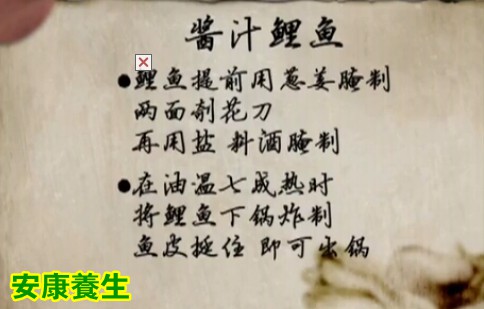 酱汁鲤鱼
●鲤鱼提前用葱姜腌制
两面剞花刀
再用盐 料酒腌制
●在油温七成热时
将鲤鱼下锅炸制
鱼皮挺住 即可出锅
安康養生